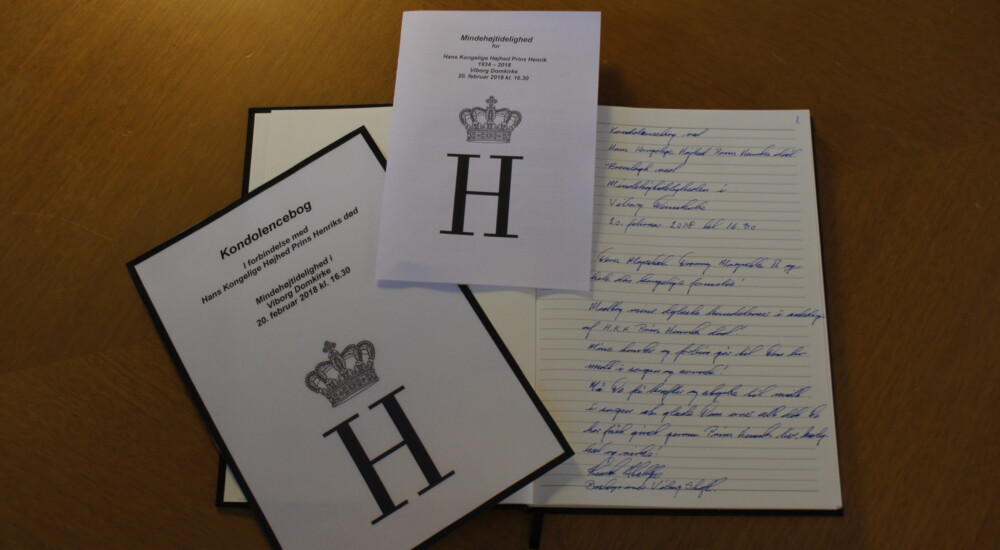 Mindehøjtidelighed
for
Hans Kongelige Højhed Prins Henrik
1934 – 2018
Viborg Domkirke
20. februar 2018 kl. 16.30
H
Kondolencebog
I forbindelse med
Hans Kongelige Højhed Prins Henriks død
Mindehøjtidelighed i
Viborg Domkirke
20. februar 2018 kl. 16.30
H
1
Kondolencebog ved
Hans Kongelige Højhed Prins Henriks død.
Mindehøjtideligheden i
Viborg Domkirke
20. februar 2018 kl 16.30
Deres Majestæt Dronning Margrethe II og
hele den kongelige familie!
Modtag mine dybeste kondolencer i anledning
af H.K.H. Prins Henriks død.
Mine tanker og går til Dem
i sorgen og
Må De få kræfter og styrke til midt
i sorgen at glæde Dem over alt det De
har fået givet gennem Prins Henriks
Viborg Stift.